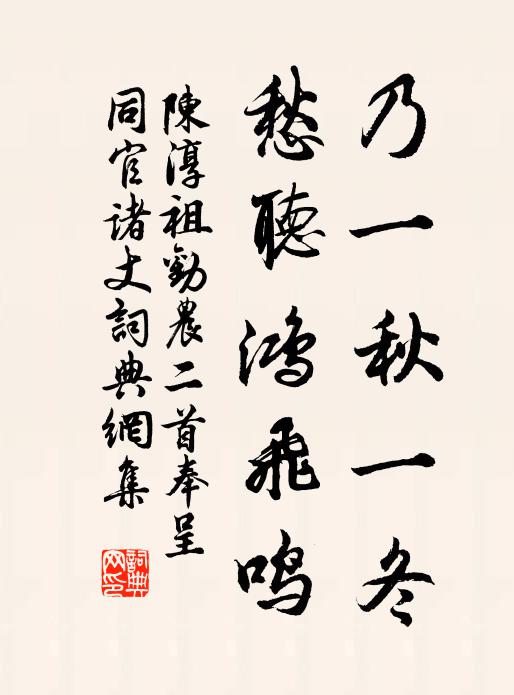 乃一秋一冬
愁聽鴻飛鳴
陳淳祖勸農二首奉呈
同官諸丈詞典網集
詞典网印